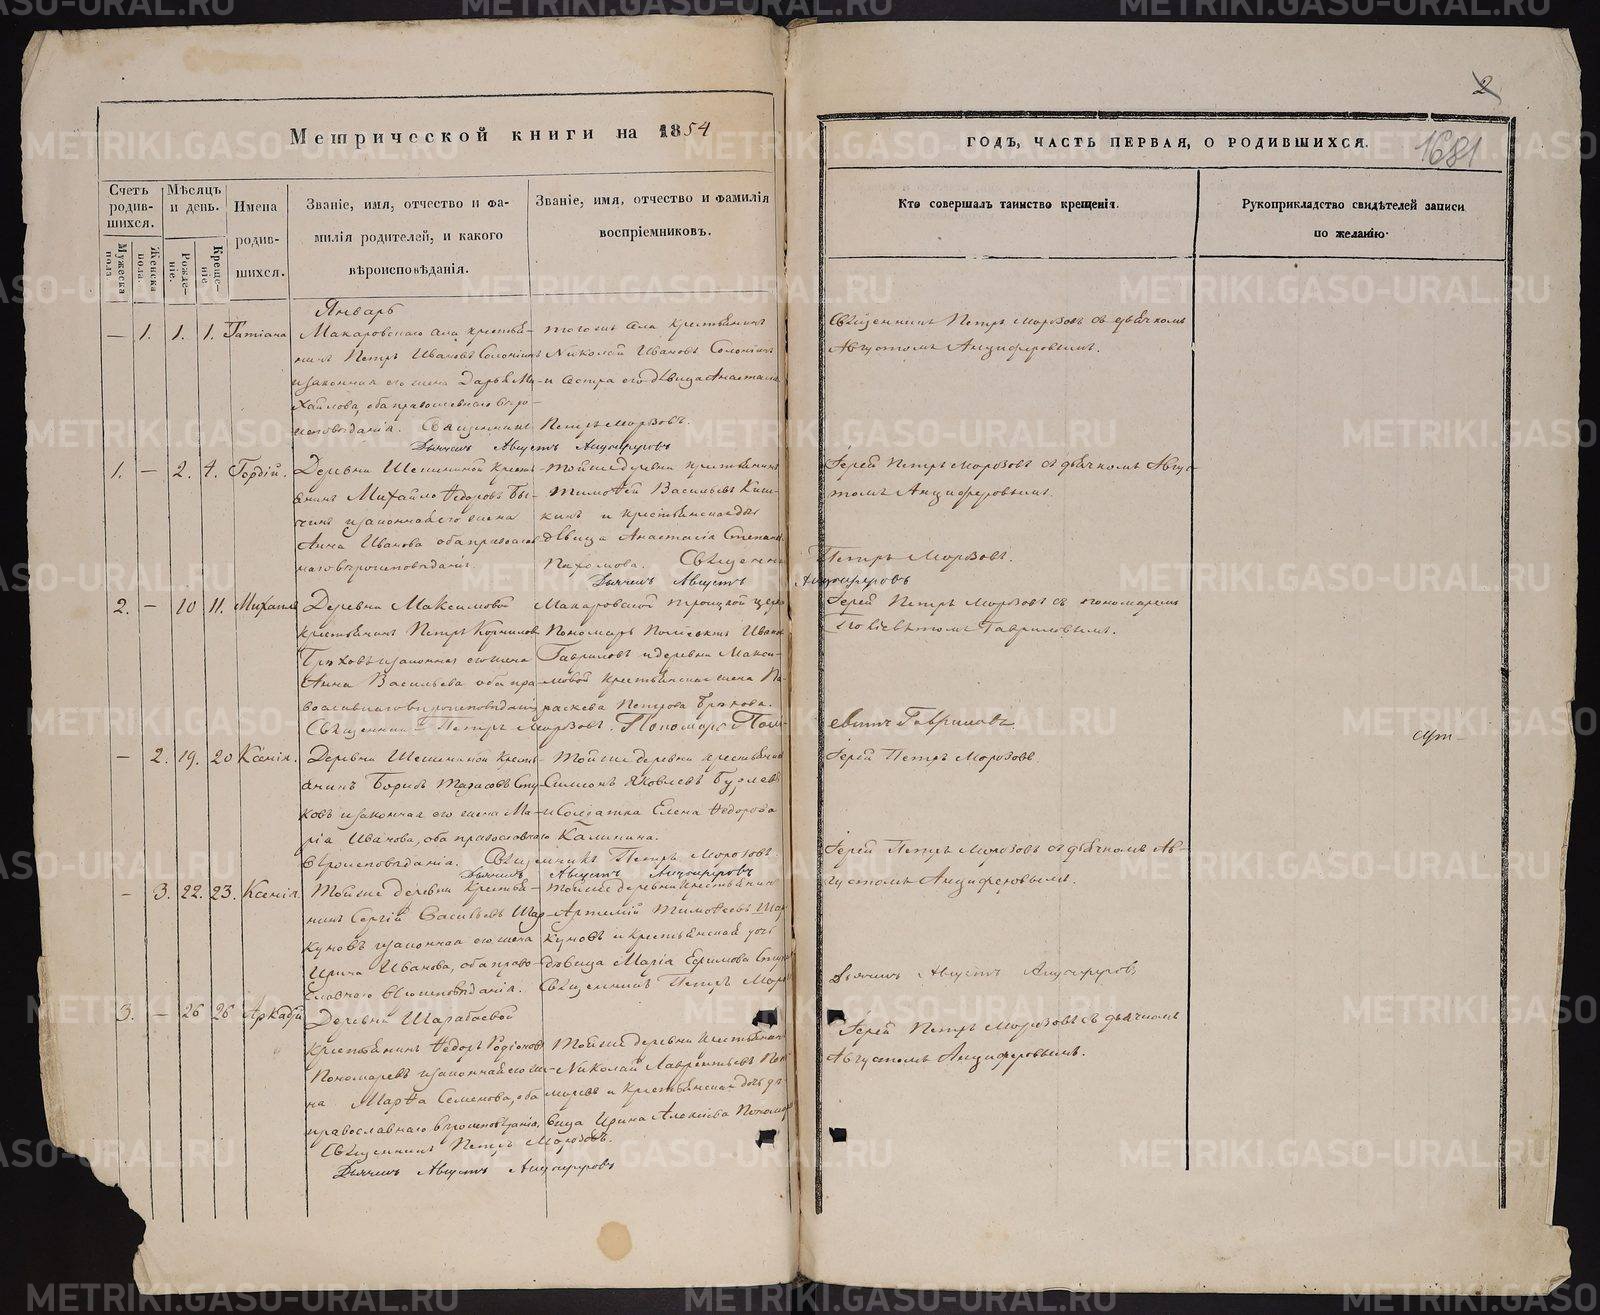 Метрической книги на 1854
ГОДЪ, ЧАСТЬ ПЕРВАЯ, О РОДИВШИХСЯ.
2
1681
Счетъ родив-шихся.
Мужеска пола
Женска пола.
Мѣсяцъ и день.
Рожде-ніе.
Креще-ніе
Имена
родив-
шихся.
Званіе, имя, отчество и фа-
милія родителей, и какого
вѣроисповѣданія.
Званіе, имя, отчество и фамилія
воспріемниковъ.
Кто совершалъ таинство крещенія.
Рукоприкладство свидѣтелей записи
по желанію.
Январь
— 1. 1. 1. Татіана
Макаровскаго села крестья-
нинъ Петръ Ивановъ Солонинъ
и законная его жена Дарья Ми-
хайлова, оба православнаго вѣро-
исповѣданія. Священникъ Петръ Морозовъ.
Дьячекъ Августъ Анциферовъ
тогожъ села крестьянинъ
Николай Ивановъ Солонинъ
и сестра его дѣвица Анастасія
Священникъ Петръ Морозовъ съ дьячкомъ
Августомъ Анциферовымъ.
1. — 2. 4. Гордій.
Деревни Шешениной кресть-
янинъ Михайло Ѳедоровъ Бы-
чинъ и законная его жена
Анна Иванова оба православ
наго вѣроисповѣданія.
тойже деревни крестьянинъ
Тимоѳей Васильевъ
и крестьянская
дѣвица Анастасія Степан
Пахомова. Священни
Петръ Морозовъ.
Дьячекъ Августъ Анциферовъ
Іерей Петръ Морозовъ съ дьячкомъ Авгус-
томъ Анциферовымъ.
2. — 10 11. Михаилъ
Деревни Максимовой
крестьянинъ Петръ Корниловъ
и законная его жена
Анна Васильева оба пра-
вославнаго вѣроисповѣданія
Священникъ Петръ Морозовъ. Пономарь Поли-
евктъ Гавриловъ.
Макаровской Троицкой церк
Пономарь Поліевктъ Иванов
Гавриловъ и деревни Макси-
мовой крестьянская жена Па-
раскева Петрова
Іерей Петръ Морозовъ съ пономаремъ
Поліевктомъ Гавриловымъ.
— 2. 19. 20 Ксенія.
Деревни Шешениной кресть-
янинъ Борисъ Тарасовъ
и законная его жена Ма-
рія Иванова, оба православнаго
вѣроисповѣданія. Священникъ Петръ Морозовъ.
Дьячекъ Августъ Анциферовъ
Тойже деревни крестьянин
Симеонъ Яковлевъ
и Солдатка Елена Ѳедорова
Калинина.
Іерей Петръ Морозовъ
— 3. 22. 23. Ксенія.
Тойже деревни крестья-
нинъ Сергій Васильевъ Шар-
куновъ и законная его жена
Ирина Иванова, оба право-
славнаго вѣроисповѣданія.
Тойже деревни крестьянинъ
Артемій Тимоѳеевъ Шар
куновъ и крестьянская дочь
дѣвица Марія Ефимова
Священникъ Петръ Моро
Дьячекъ Августъ Анциферовъ
Іерей Петръ Морозовъ съ дьячкомъ Ав-
густомъ Анциферовымъ.
3. — 26 26 Аркадій
Деревни
крестьянинъ Ѳедоръ Родіоновъ
Пономаревъ и законная его же-
на Марѳа Семенова, оба
православнаго вѣроисповѣданія.
Священникъ Петръ Морозовъ.
Дьячекъ Августъ Анциферовъ
Тойже деревни крестьянин
Николай Лаврентьевъ Поно
маревъ и крестьянская дочь дѣ-
вица Ирина Алексіева Пономар
Іерей Петръ Морозовъ съ дьячкомъ
Августомъ Анциферовымъ.
METRIKI.GASO-URAL.RU